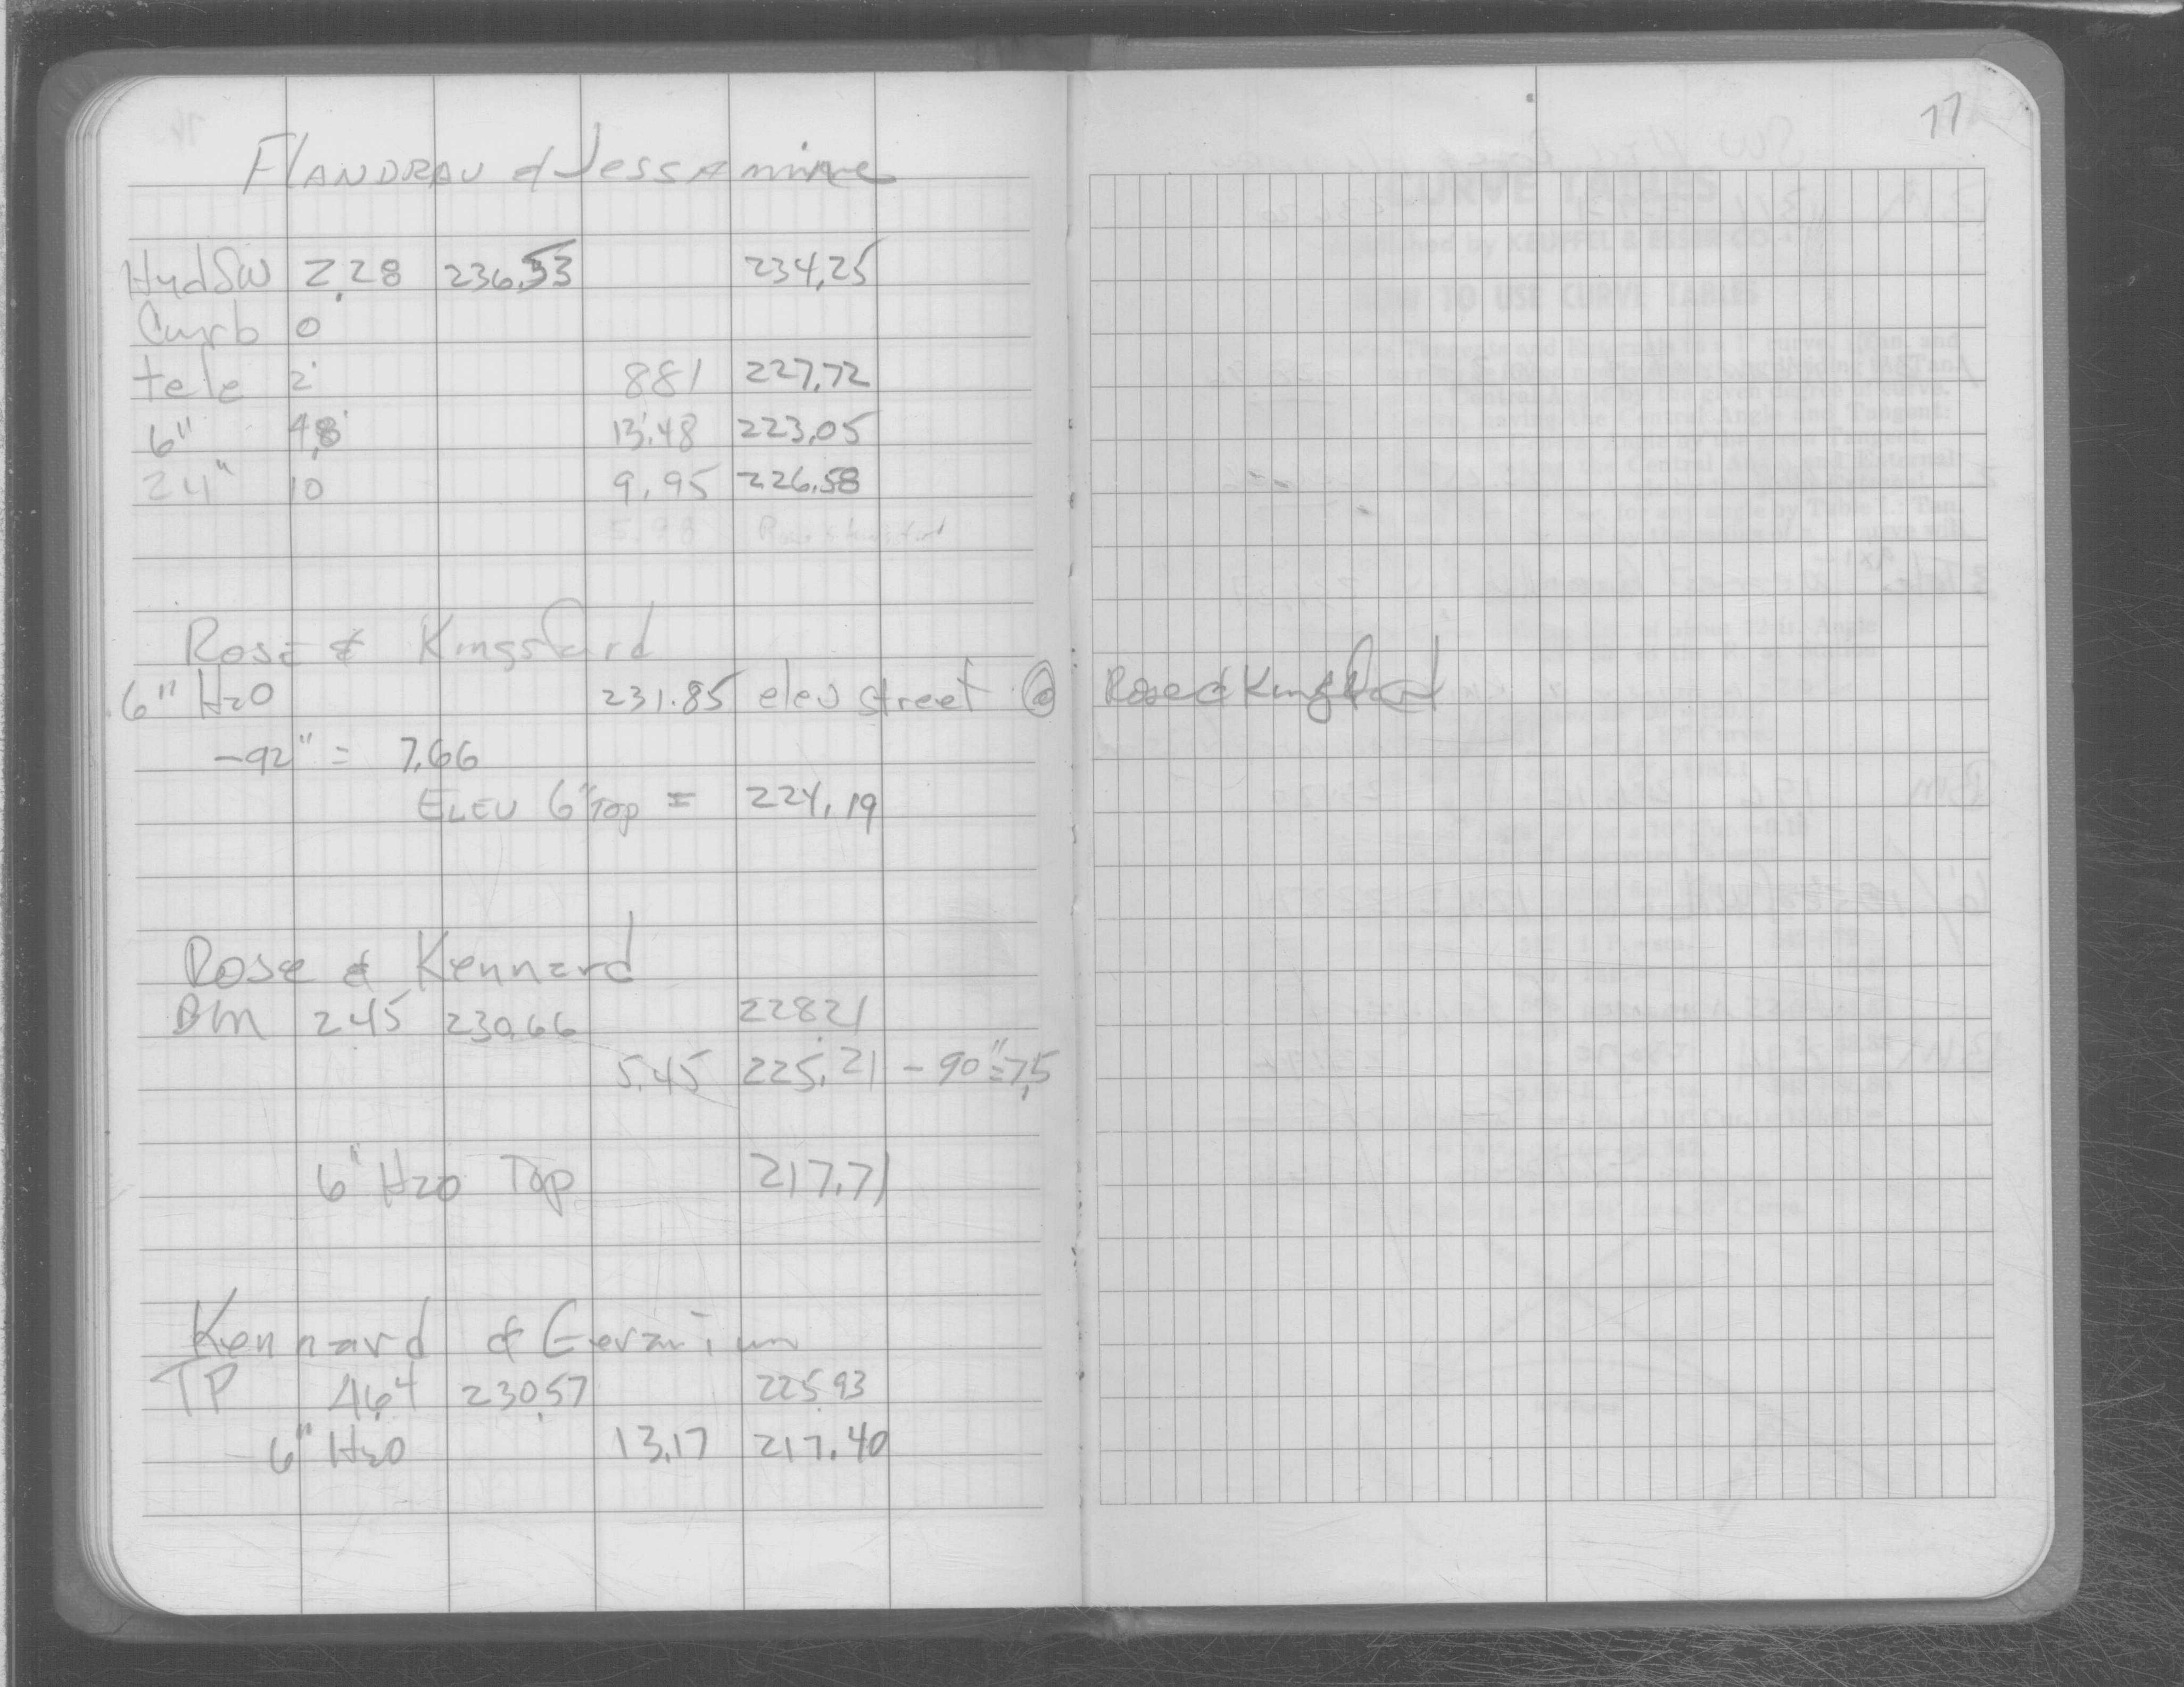 77
FLANDRAU & Jessamine
Hyd SW 2.28 236.53 234.25
Curb 0
tele 2' 881 227.72
6" 4.8' 13.48 223.05
24" 10 9.95 226.58
5.98 Rose & Kingsford
Rose & Kingsford
6" H2O 231.85 elev street @ Rose & Kingsford
-92" = 7.66
ELEV 6" Top = 224.19
Rose & Kennard
BM 2.45 230.66 228.21
5.45 225.21 - 90" = 7.5
6" H2O Top 217.71
Kennard & Geranium
TP 4.64 230.57 225.93
6" H2O 13.17 217.40